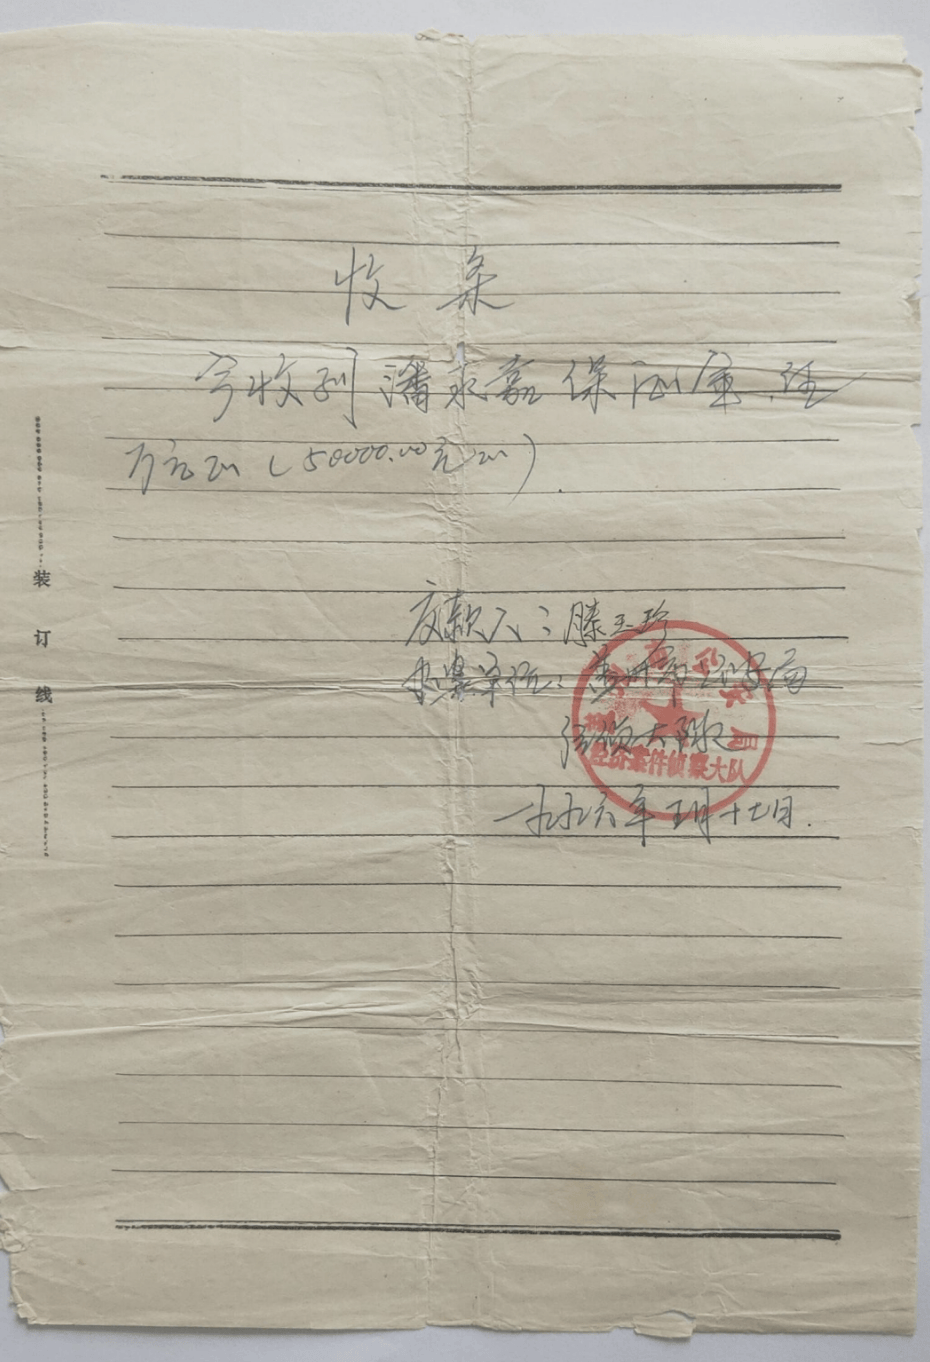 收条
今收到潘永嘉保证金伍
万元正(50000.00元正)
交款人:滕玉珍
办案单位:黄州市公安局
经侦大队
一九九六年五月十七日.
经济案件侦察大队
装
订
线